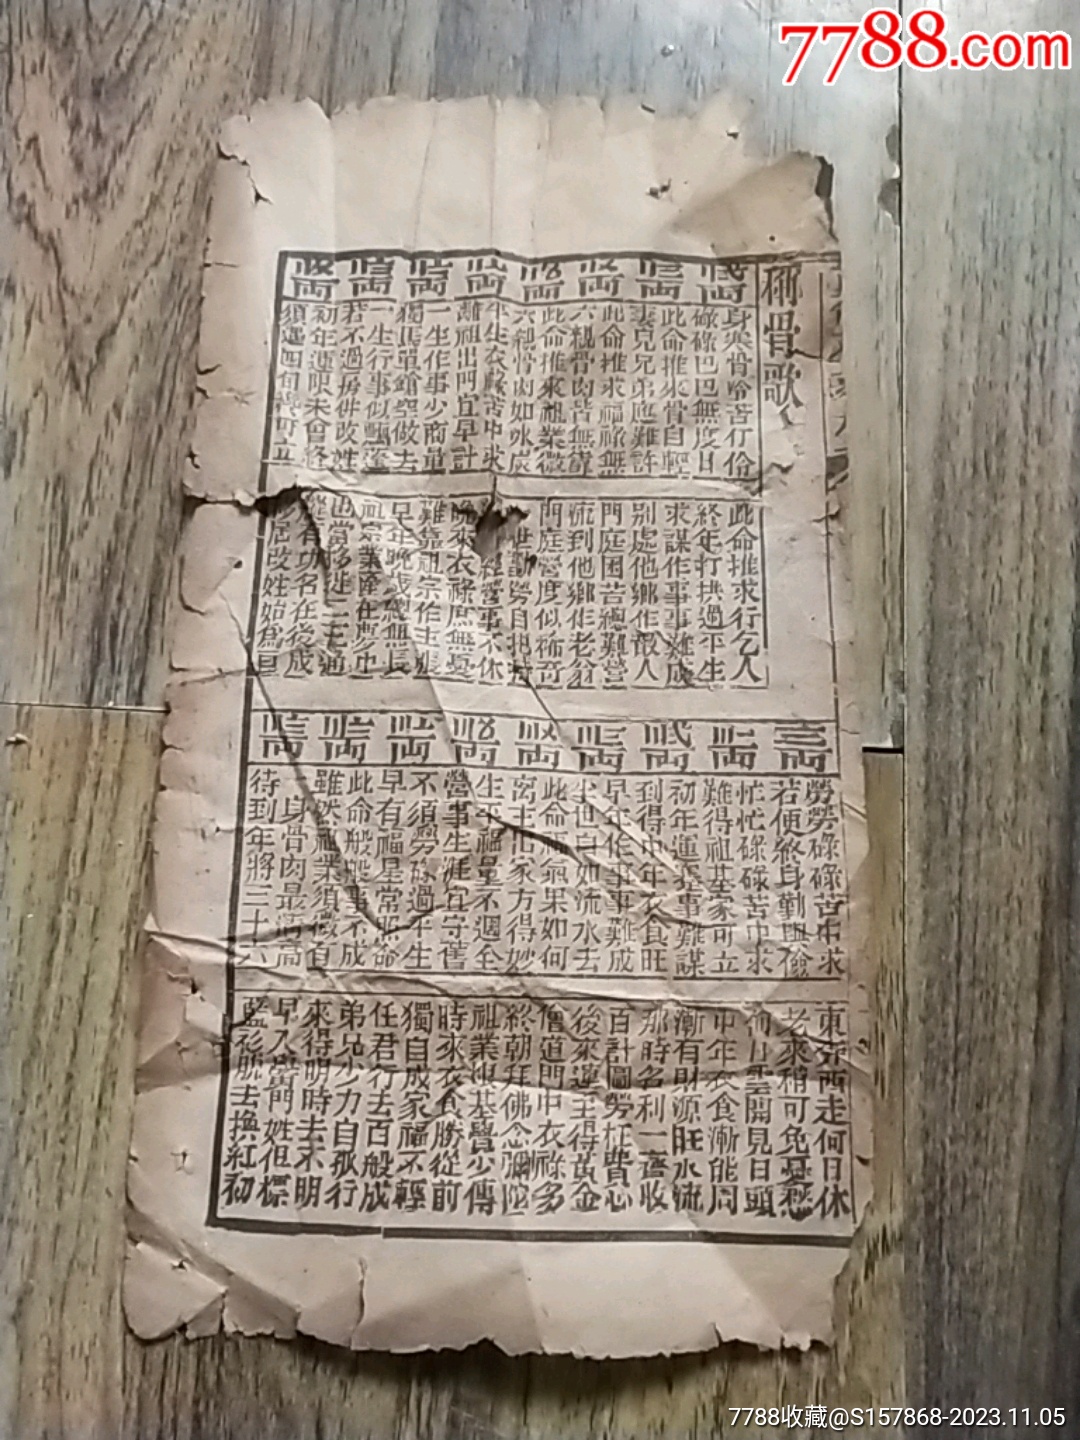 7788.com
稱骨歌
身寒骨冷苦伶仃
此命推求行乞人
碌碌巴巴無度日
終年打拱過平生
此命推來骨自輕
求謀作事事難成
妻兒兄弟應難許
別處他鄉作散人
此命推求福祿無
門庭困苦總難營
六親骨肉皆無靠
流到他鄉作老翁
此命推來祖業微
門庭營度似稀奇
六親骨肉如冰炭
世勤勞自把
平生衣祿苦中求
經營事不休
離祖出門宜早計
晚來衣祿庶無憂
一生作事少商量
難靠祖宗作主張
獨馬單鎗空做去
早年晚歲總無長
一生行事似飄蓬
祖宗業產在夢中
若不過房併改姓
也當移徙二三通
初年運限未曾終
有功名在後成
須過四旬得可立
移居改姓始為
勞勞碌碌苦中求
東奔西走何日休
若使終身勤與儉
老來稍可免憂愁
忙忙碌碌苦中求
何日雲開見日頭
難得祖基家可立
中年衣食漸能周
初年運蹇事難謀
漸有財源旺水流
到得中年衣食旺
那時名利一齊收
早年作事事難成
百計圖勞枉費心
半世自如流水去
後來運至得黃金
此命福氣果如何
僧道門中衣祿多
离主出家方得妙
終朝拜佛念彌陀
生平福量不週全
祖業根基覺少傳
營事生涯宜守舊
時來衣食勝從前
不須勞碌過平生
獨自成家福不輕
早有福星常照命
任君行去百般成
此命般般事不成
弟兄少力自孤行
雖然祖業須微有
來得明時去不明
一身骨肉最清高
早入黌門姓但標
待到年將三十六
藍衫脫去換紅初
7788收藏@S157868-2023.11.05